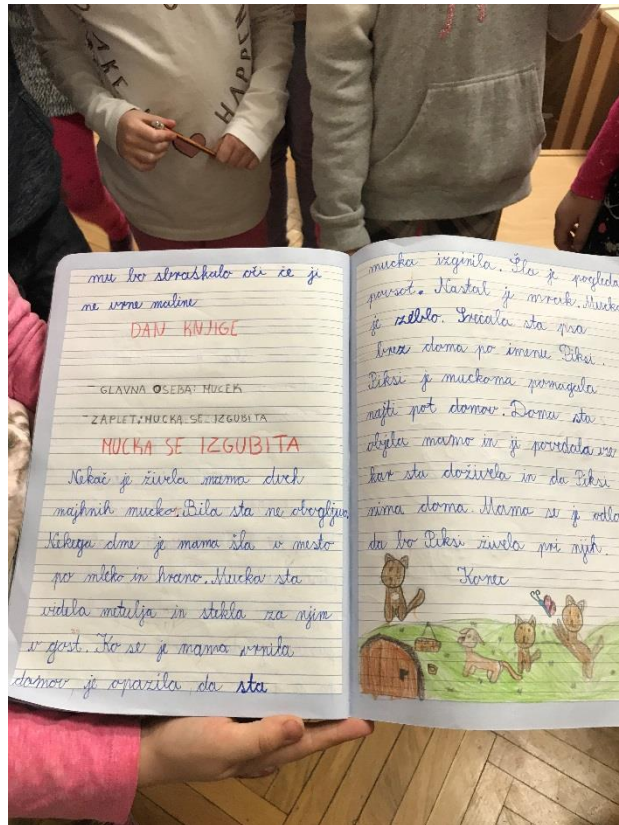 HAPPEN
mu bo sbraskalo oči če ji
ne vrne maline
DAN KNJIGE
- GLAVNA OSEBA: MUCEK
- ZAPLET: MUCKA SE IZGUBITA
MUCKA SE IZGUBITA
Nekač je živela mama dveh
majhnih mucko. Bila sta ne
Nekega dne je mama šla v mesto
po mleko in hrano. Mucka sta
videla metulja in stekla za njim
v gost. Ko se je mama vrnila
domov je opazila da sta
mucka izginila. Šla je pogleda
povsot. Nastal je mrak. Mucka
je zeblo. Srečala sta psa
brez doma po imenu Piksi.
Piksi je muckoma pomagala
najti pot domov. Doma sta
objela mamo in ji povedala vse
kar sta doživela in da Piksi
nima doma. Mama se je odlo
da bo Piksi živela pri njih.
Konec